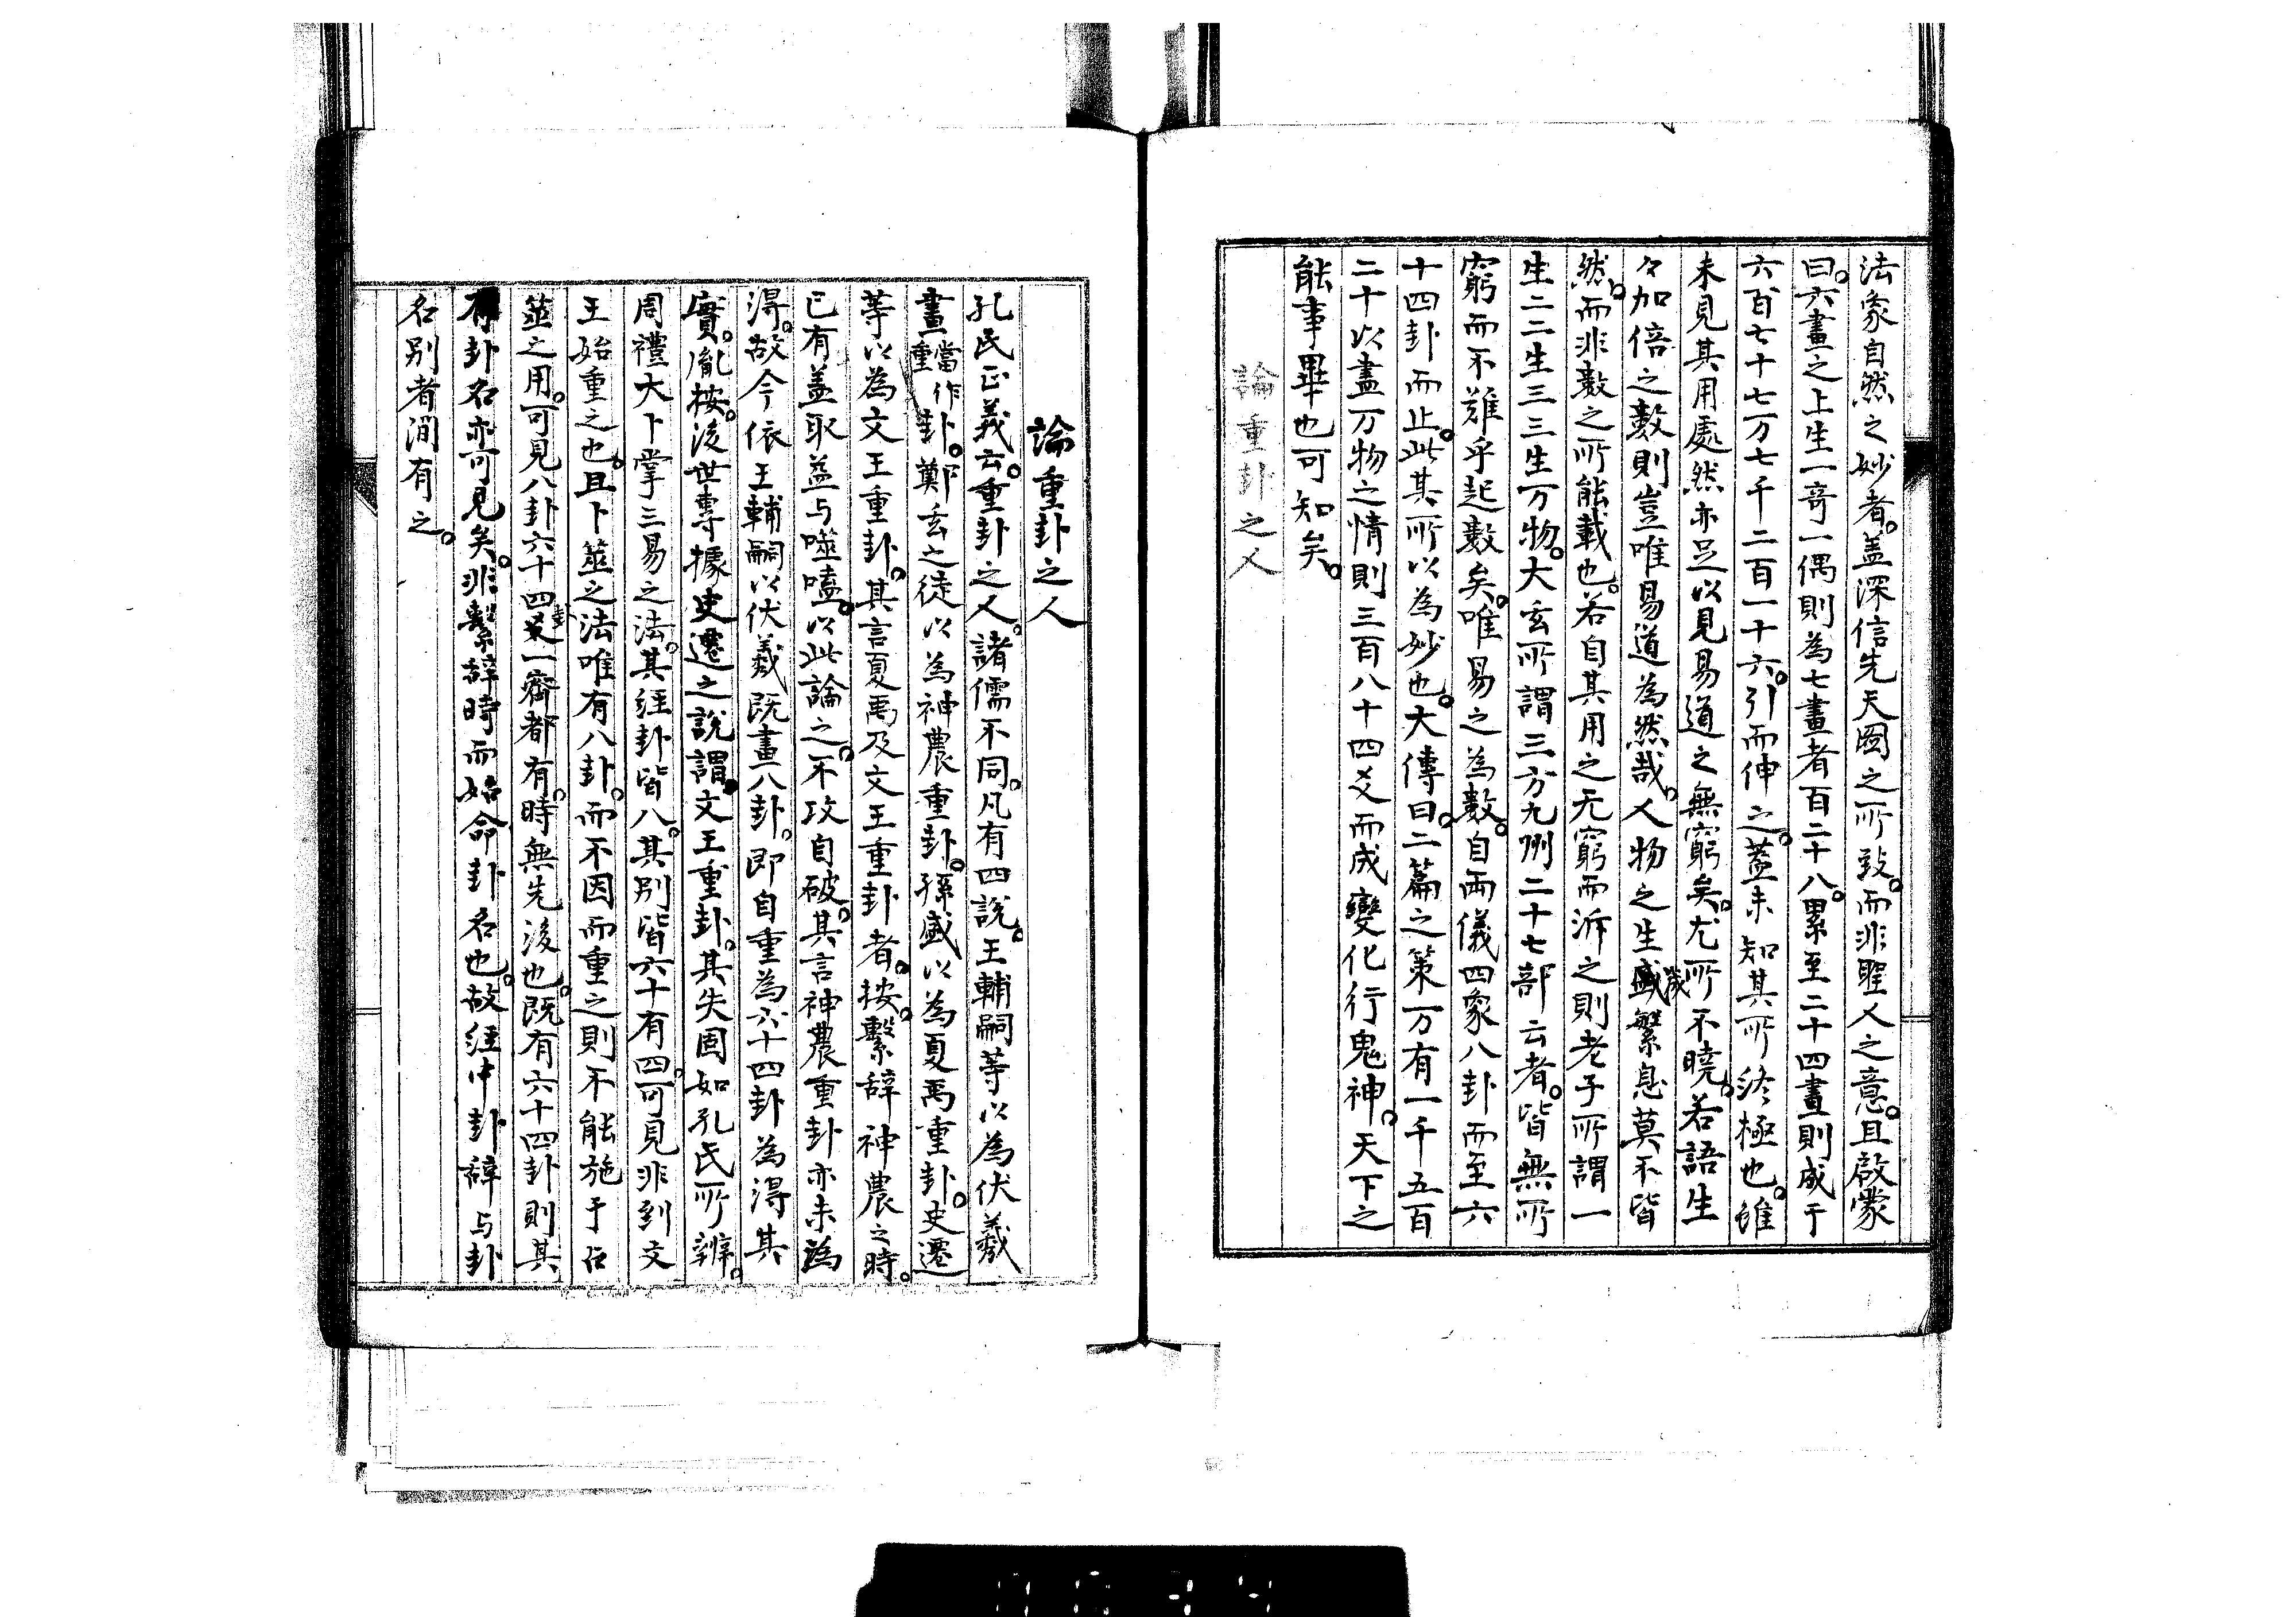 法象自然之妙者。盖深信先天圖之所致。而非聖人之意。且啟蒙
曰。六畫之上生一奇一偶則為七畫者百二十八。累至二十四畫則成于
六百七十七万七千二百一十六。引而伸之。蓋未知其所終極也。雖
未見其用處然亦足以見易道之無窮矣。尤所不曉。若語生
々加倍之數則豈唯易道為然哉。人物之生盛歲繁息莫不皆
然。而非數之所能載也。若自其用之无窮而泝之則老子所謂一
生二二生三三生万物。大玄所謂三方九州二十七部云者。皆無所
窮而不難乎起數矣。唯易之為數。自兩儀四象八卦而至六
十四卦而止。此其所以為妙也。大傳曰。二篇之策万有一千五百
二十以盡万物之情則三百八十四爻而成變化行鬼神。天下之
能事畢也可知矣。
論重卦之人
論重卦之人
孔氏正義云。重卦之人。諸儒不同。凡有四說。王輔嗣等以為伏羲
畫當作重卦。鄭玄之徒以為神農重卦。孫盛以為夏禹重卦。史遷
等以為文王重卦。其言夏禹及文王重卦者。按。繫辭神農之時。
已有盖取益与噬嗑。以此論之。不攻自破。其言神農重卦亦未為
得。故今依王輔嗣以伏羲既畫八卦。即自重為六十四卦為得其
實。胤按。後世專據史遷之說謂。文王重卦。其失固如孔氏所辨。
周禮大卜掌三易之法。其経卦皆八。其別皆六十有四。可見非到文
王始重之也。且卜筮之法唯有八卦。而不因而重之則不能施于占
筮之用。可見八卦六十四卦一齊都有。時無先後也。既有六十四卦則其
有卦名亦可見矣。非繫辞時而始命卦名也。故経中卦辞与卦
名別者澗有之。